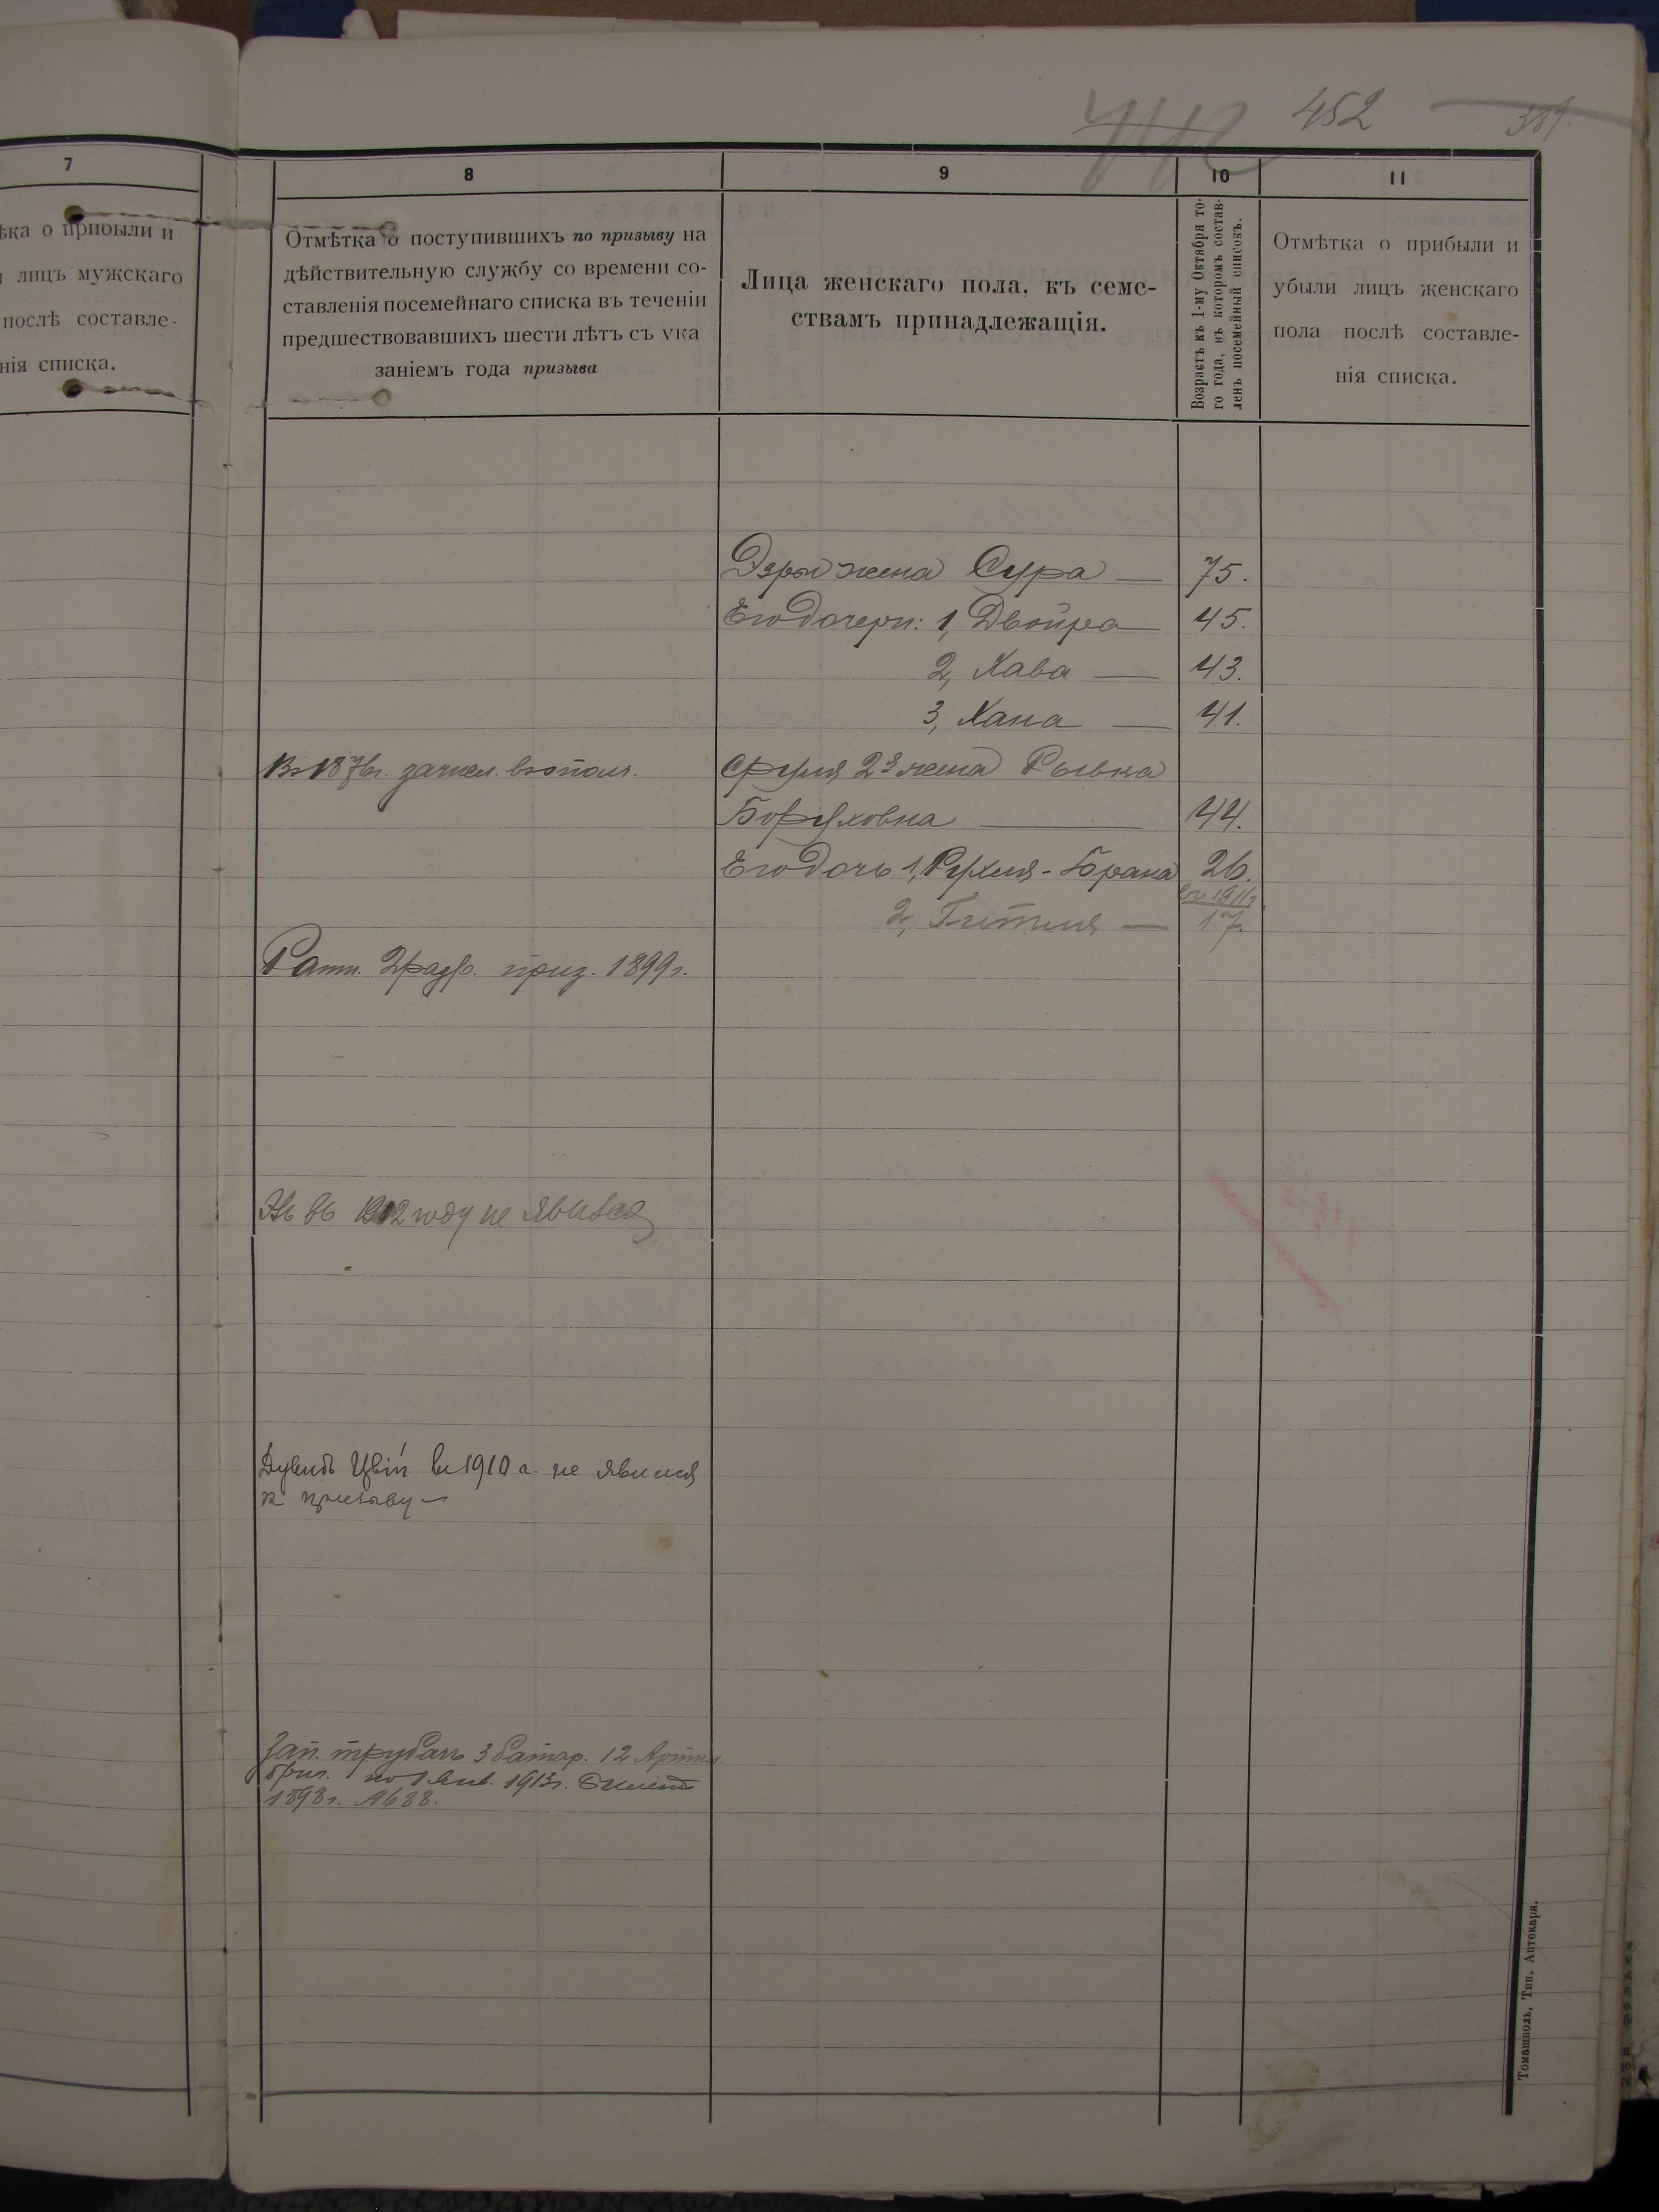 452
381.
7
8
9
10
11
ѣка о прибыли и
лицъ мужскаго
послѣ составле-
нія списка.
Отмѣтка о поступившихъ по призыву на
дѣйствительную службу со времени со-
ставленія посемейнаго списка въ теченіи
предшествовавшихъ шести лѣтъ съ ука
заніемъ года призыва
Лица женскаго пола, къ семе-
ствамъ принадлежащія.
Возрастъ къ 1-му Октября то-
го года, къ которомъ состав-
ленъ посемейный списокъ.
Отмѣтка о прибыли и
убыли лицъ женскаго
пола послѣ составле-
нія списка.
жена Сура — 75.
Его дочери: 1, Двойра — 45.
2, Хава — 43.
3, Хана — 41.
Въ 1876г. зачисл. въ ополч.
Сруля 2я жена Рывка
Боруховна — 44.
Его дочь 1, Рухля-Брана 26.
въ 1911г.
2, Гитля — 17.
Ратн. 2 разр. приз. 1899г.
въ 1902 году не явился
Дувидъ Цви въ 1910 г. не явился
к призыву —
Зап. трубачъ 3 батар. 12 Артил.
бриг. по 1 Янв. 1913г. билетъ
1898г. №688.
Томашполь, Тип. Аптекаря.